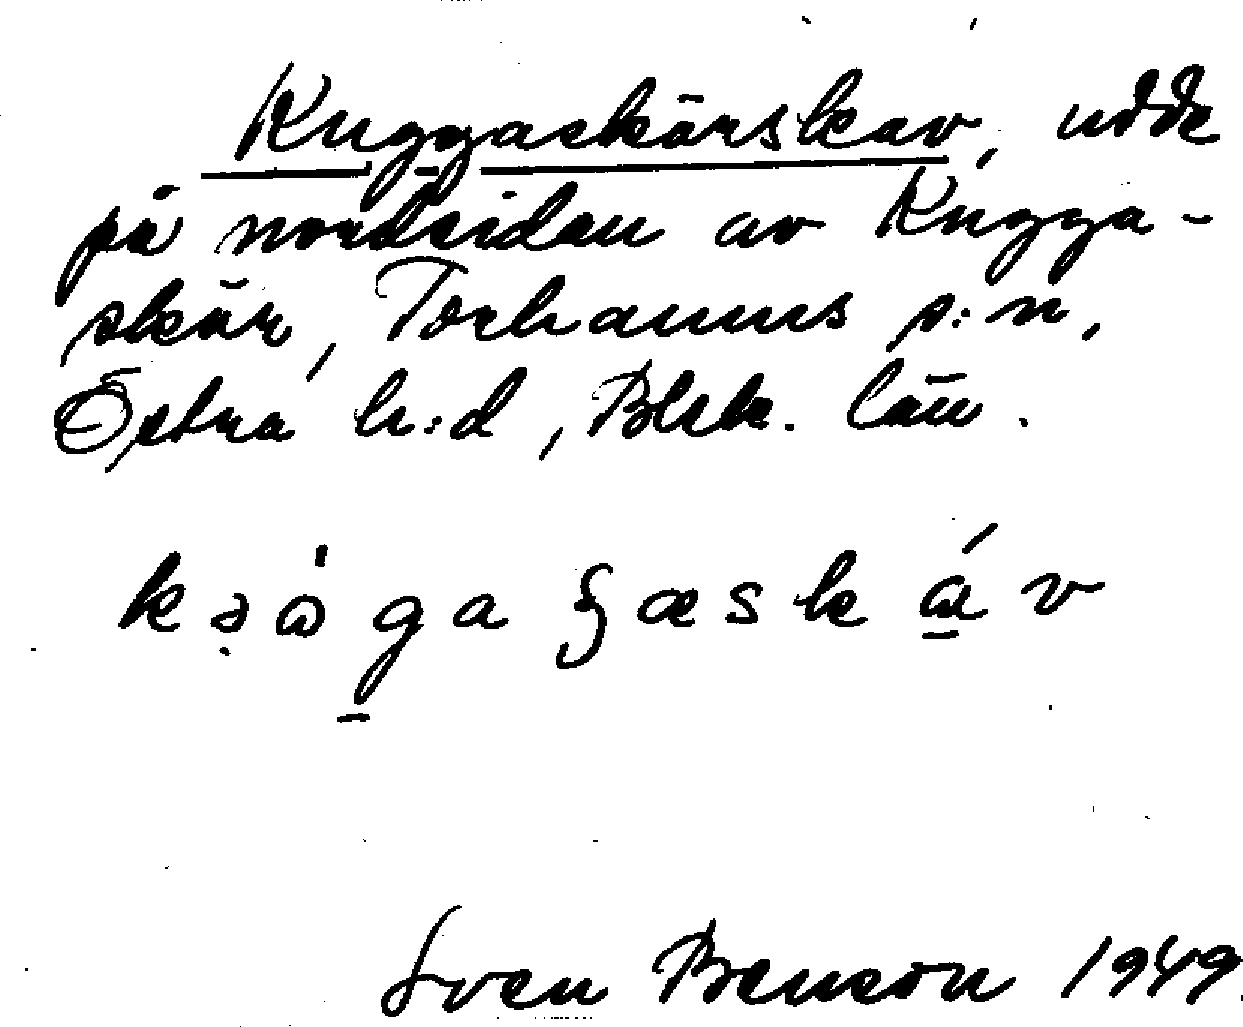 Kuggaskärskav, udde
på nordsidan av Kugga-
skär, Torhamns s:n,
Östra h:d, Blek. län.
Sven Benson 1949.